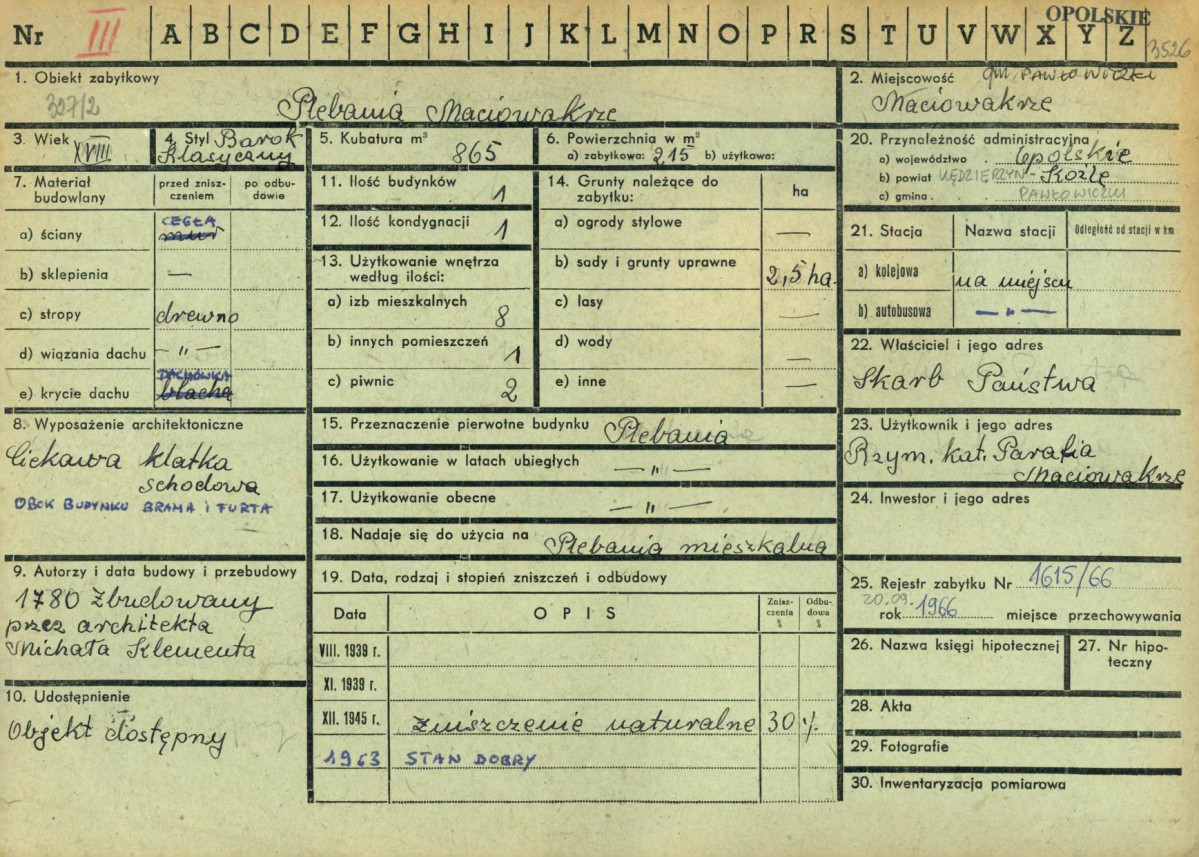 OPOLSKIE
Nr III A B C D E F G H I J K L M N O P R S T U V W X Y Z
3526
1. Obiekt zabytkowy
327/2
Plebania Maciowakrze
2. Miejscowość gm. PAWŁOWICZKI
Maciowakrze
3. Wiek
XVIII
4. Styl Barok
Klasyczny
5. Kubatura m³
865
6. Powierzchnia w m²
a) zabytkowa: 215 b) użytkowa:
20. Przynależność administracyjna
a) województwo . Opolskie
b) powiat KĘDZIERZYN - Koźle
c) gmina . PAWŁOWICZKI
7. Materiał budowlany
przed zniszczeniem
po odbudowie
a) ściany
CEGŁA
mur
b) sklepienia —
c) stropy drewno
d) wiązania dachu — " —
DACHÓWKA
e) krycie dachu blacha
11. Ilość budynków 1
12. Ilość kondygnacji 1
13. Użytkowanie wnętrza
według ilości:
a) izb mieszkalnych 8
b) innych pomieszczeń 1
c) piwnic 2
14. Grunty należące do
zabytku:
ha
a) ogrody stylowe —
b) sady i grunty uprawne 2,5 ha
c) lasy —
d) wody —
e) inne —
21. Stacja Nazwa stacji Odległość od stacji w km
a) kolejowa na miejscu
b) autobusowa — " —
22. Właściciel i jego adres
Skarb Państwa
8. Wyposażenie architektoniczne
Ciekawa klatka
schodowa
OBOK BUDYNKU BRAMA I FURTA
15. Przeznaczenie pierwotne budynku Plebania
16. Użytkowanie w latach ubiegłych — " —
17. Użytkowanie obecne — " —
18. Nadaje się do użycia na Plebania mieszkalna
23. Użytkownik i jego adres
Rzym. kat. Parafia
Maciowakrze
24. Inwestor i jego adres
9. Autorzy i data budowy i przebudowy
1780 Zbudowany
przez architekta
Michała Klementa
19. Data, rodzaj i stopień zniszczeń i odbudowy
Data OPIS Zniszczenia % Odbudowa %
VIII. 1939 r.
XI. 1939 r.
XII. 1945 r. Zniszczenie naturalne 30 %
1963 STAN DOBRY
25. Rejestr zabytku Nr 1615/66
20.09.
rok 1966 miejsce przechowywania
26. Nazwa księgi hipotecznej
27. Nr hipoteczny
10. Udostępnienie
Objekt dostępny
28. Akta
29. Fotografie
30. Inwentaryzacja pomiarowa